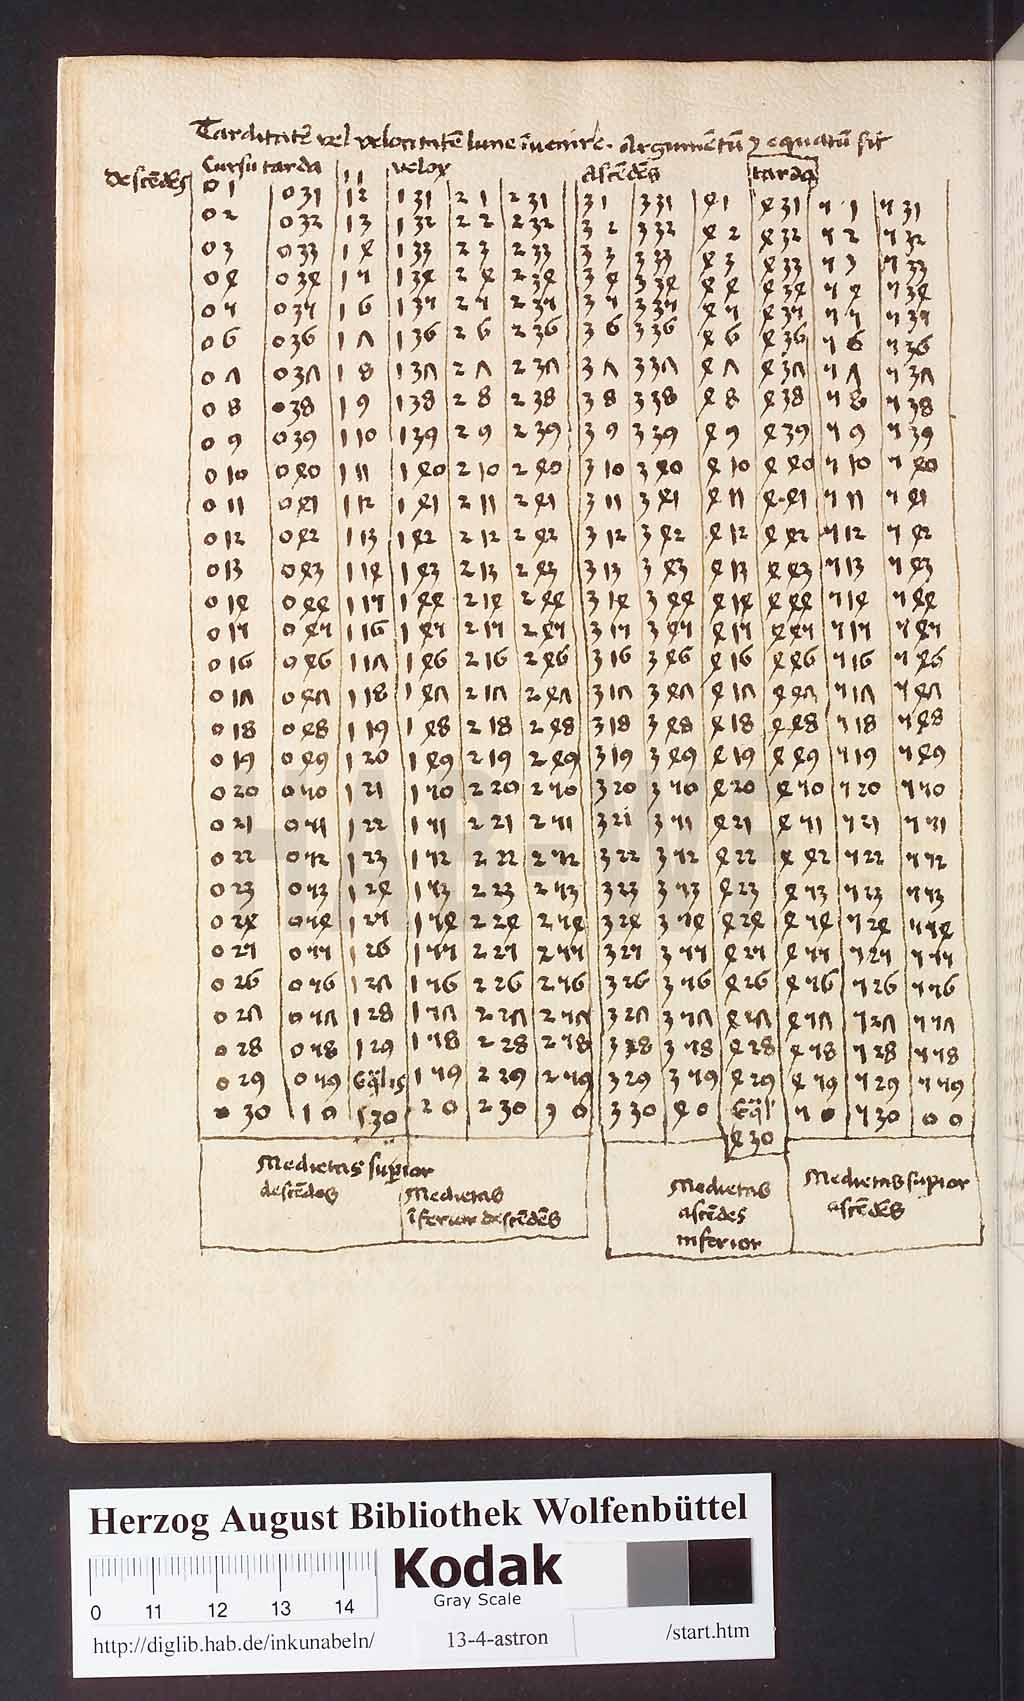 Tarditatē vel velocitatē lune īvenire. Argumentū ɔ equatū sit
descēdēs Cursu tarda velox Ascēdēs tarda
0 1 0 31 1 1 1 31 2 1 2 31 3 1 3 31 4 1 4 31 5 1 5 31
0 2 0 32 1 2 1 32 2 2 2 32 3 2 3 32 4 2 4 32 5 2 5 32
0 3 0 33 1 3 1 33 2 3 2 33 3 3 3 33 4 3 4 33 5 3 5 33
0 4 0 34 1 4 1 34 2 4 2 34 3 4 3 34 4 4 4 34 5 4 5 34
0 5 0 35 1 6 1 35 2 5 2 35 3 5 3 35 4 5 4 35 5 5 5 35
0 6 0 36 1 7 1 36 2 6 2 36 3 6 3 36 4 6 4 36 5 6 5 36
0 7 0 37 1 8 1 37 2 7 2 37 3 7 3 37 4 7 4 37 5 7 5 37
0 8 0 38 1 9 1 38 2 8 2 38 3 8 3 38 4 8 4 38 5 8 5 38
0 9 0 39 1 10 1 39 2 9 2 39 3 9 3 39 4 9 4 39 5 9 5 39
0 10 0 40 1 11 1 40 2 10 2 40 3 10 3 40 4 10 4 40 5 10 5 40
0 11 0 41 1 12 1 41 2 11 2 41 3 11 3 41 4 11 4 41 5 11 5 41
0 12 0 42 1 13 1 42 2 12 2 42 3 12 3 42 4 12 4 42 5 12 5 42
0 13 0 43 1 14 1 43 2 13 2 43 3 13 3 43 4 13 4 43 5 13 5 43
0 14 0 44 1 15 1 44 2 14 2 44 3 14 3 44 4 14 4 44 5 14 5 44
0 15 0 45 1 16 1 45 2 15 2 45 3 15 3 45 4 15 4 45 5 15 5 45
0 16 0 46 1 17 1 46 2 16 2 46 3 16 3 46 4 16 4 46 5 16 5 46
0 17 0 47 1 18 1 47 2 17 2 47 3 17 3 47 4 17 4 47 5 17 5 47
0 18 0 48 1 19 1 48 2 18 2 48 3 18 3 48 4 18 4 48 5 18 5 48
0 19 0 49 1 20 1 49 2 19 2 49 3 19 3 49 4 19 4 49 5 19 5 49
0 20 0 50 1 21 1 50 2 20 2 50 3 20 3 50 4 20 4 50 5 20 5 50
0 21 0 51 1 22 1 51 2 21 2 51 3 21 3 51 4 21 4 51 5 21 5 51
0 22 0 52 1 23 1 52 2 22 2 52 3 22 3 52 4 22 4 42 5 22 5 52
0 23 0 53 1 24 1 53 2 23 2 53 3 23 3 53 4 23 4 53 5 23 5 53
0 24 0 54 1 25 1 54 2 24 2 54 3 24 3 54 4 24 4 54 5 24 5 54
0 25 0 55 1 26 1 55 2 25 2 55 3 25 3 55 4 25 4 55 5 25 5 55
0 26 0 56 1 27 1 56 2 26 2 56 3 26 3 56 4 26 4 56 5 26 5 56
0 27 0 57 1 28 1 57 2 27 2 57 3 27 3 57 4 27 4 57 5 27 5 57
0 28 0 58 1 29 1 58 2 28 2 58 3 28 3 58 4 28 4 58 5 28 5 58
0 29 0 59 Eq̄lis 1 59 2 29 2 59 3 29 3 59 4 29 4 59 5 29 5 59
0 30 1 0 1 30 2 0 2 30 3 0 3 30 4 0 Eq̄l' 5 0 5 30 0 0
4 30
Medietas suꝑior
descēdes
Medietas
īferior descēdēs
Medietas
ascēdes
inferior
Medietas supior
ascēdēs
HAB
Herzog August Bibliothek Wolfenbüttel
Kodak
Gray Scale
0 11 12 13 14
http://diglib.hab.de/inkunabeln/ 13-4-astron /start.htm